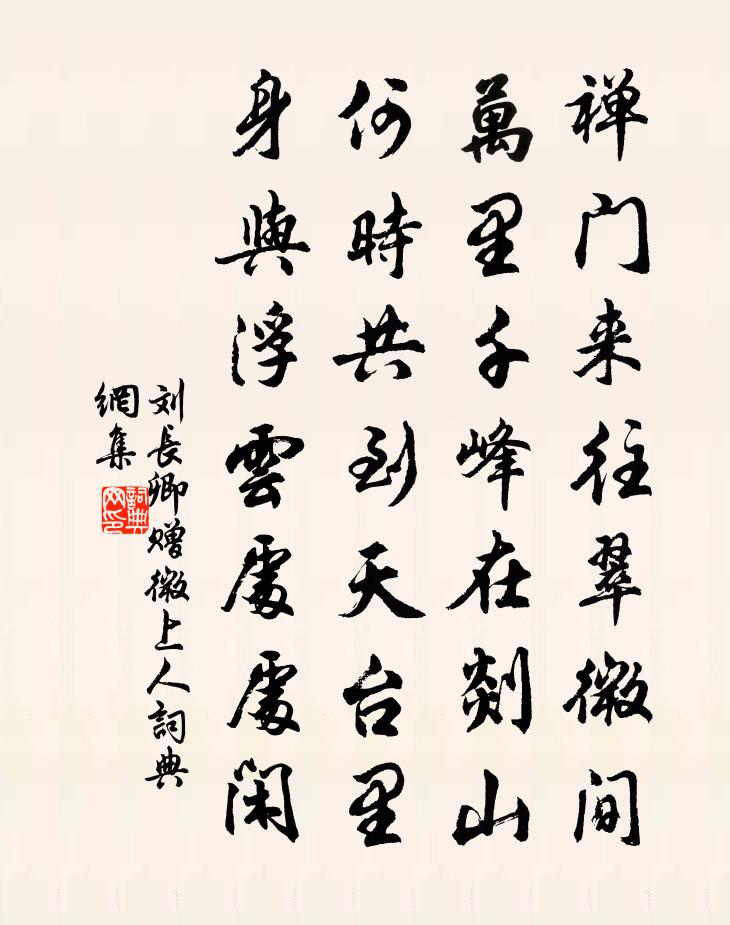 禅门来往翠微间
萬里千峰在剡山
何時共到天台里
身與浮雲處處闲
刘長卿赠微上人詞典
網集
詞典網印